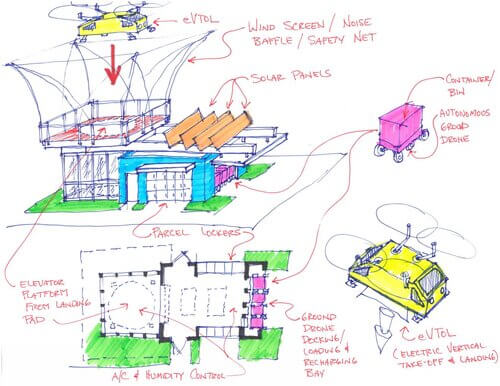 eVTOL
WIND SCREEN / NOISE
BAFFLE / SAFETY NET
SOLAR PANELS
CONTAINER/
BIN
AUTONOMOUS
GROUND
DRONE
PARCEL LOCKERS
ELEVATOR
PLATFORM
FROM LANDING
PAD
A/C & HUMIDITY CONTROL
GROUND
DRONE
DOCKING/
LOADING &
RECHARGING
BAY
eVTOL
(ELECTRIC VERTICAL
TAKE-OFF & LANDING)